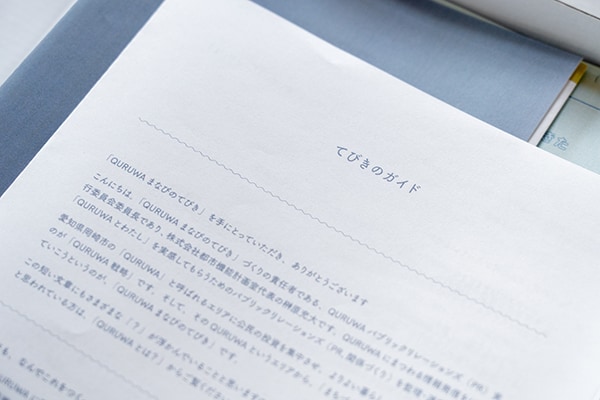 てびきのガイド
「QURUWA まなびのてびき」を手にとっていただき、ありがとうございます
こんにちは、「QURUWA まなびのてびき」づくりの責任者である、QURUWA パブリックリレーションズ（PR）実
行委員会委員長であり、株式会社都市機能計画室代表の榊原充大です。QURUWA にまつわる情報発信を
「QURUWA とわたし」を実感してもらうためのパブリックリレーションズ（PR、関係づくり）を監理
愛知県岡崎市の「QURUWA」と呼ばれるエリアに公民の投資を集中させ、よりよい暮らし
のが「QURUWA 戦略」です。そして、その QURUWA というエリアから、「まち
ていこうというのが、「QURUWA まなびのてびき」です。
この短い文章にもさまざまな「？」が浮かんでいることと思います
と思われている方は、「QURUWA とは？」からご覧ください
も、なんでこれをつく